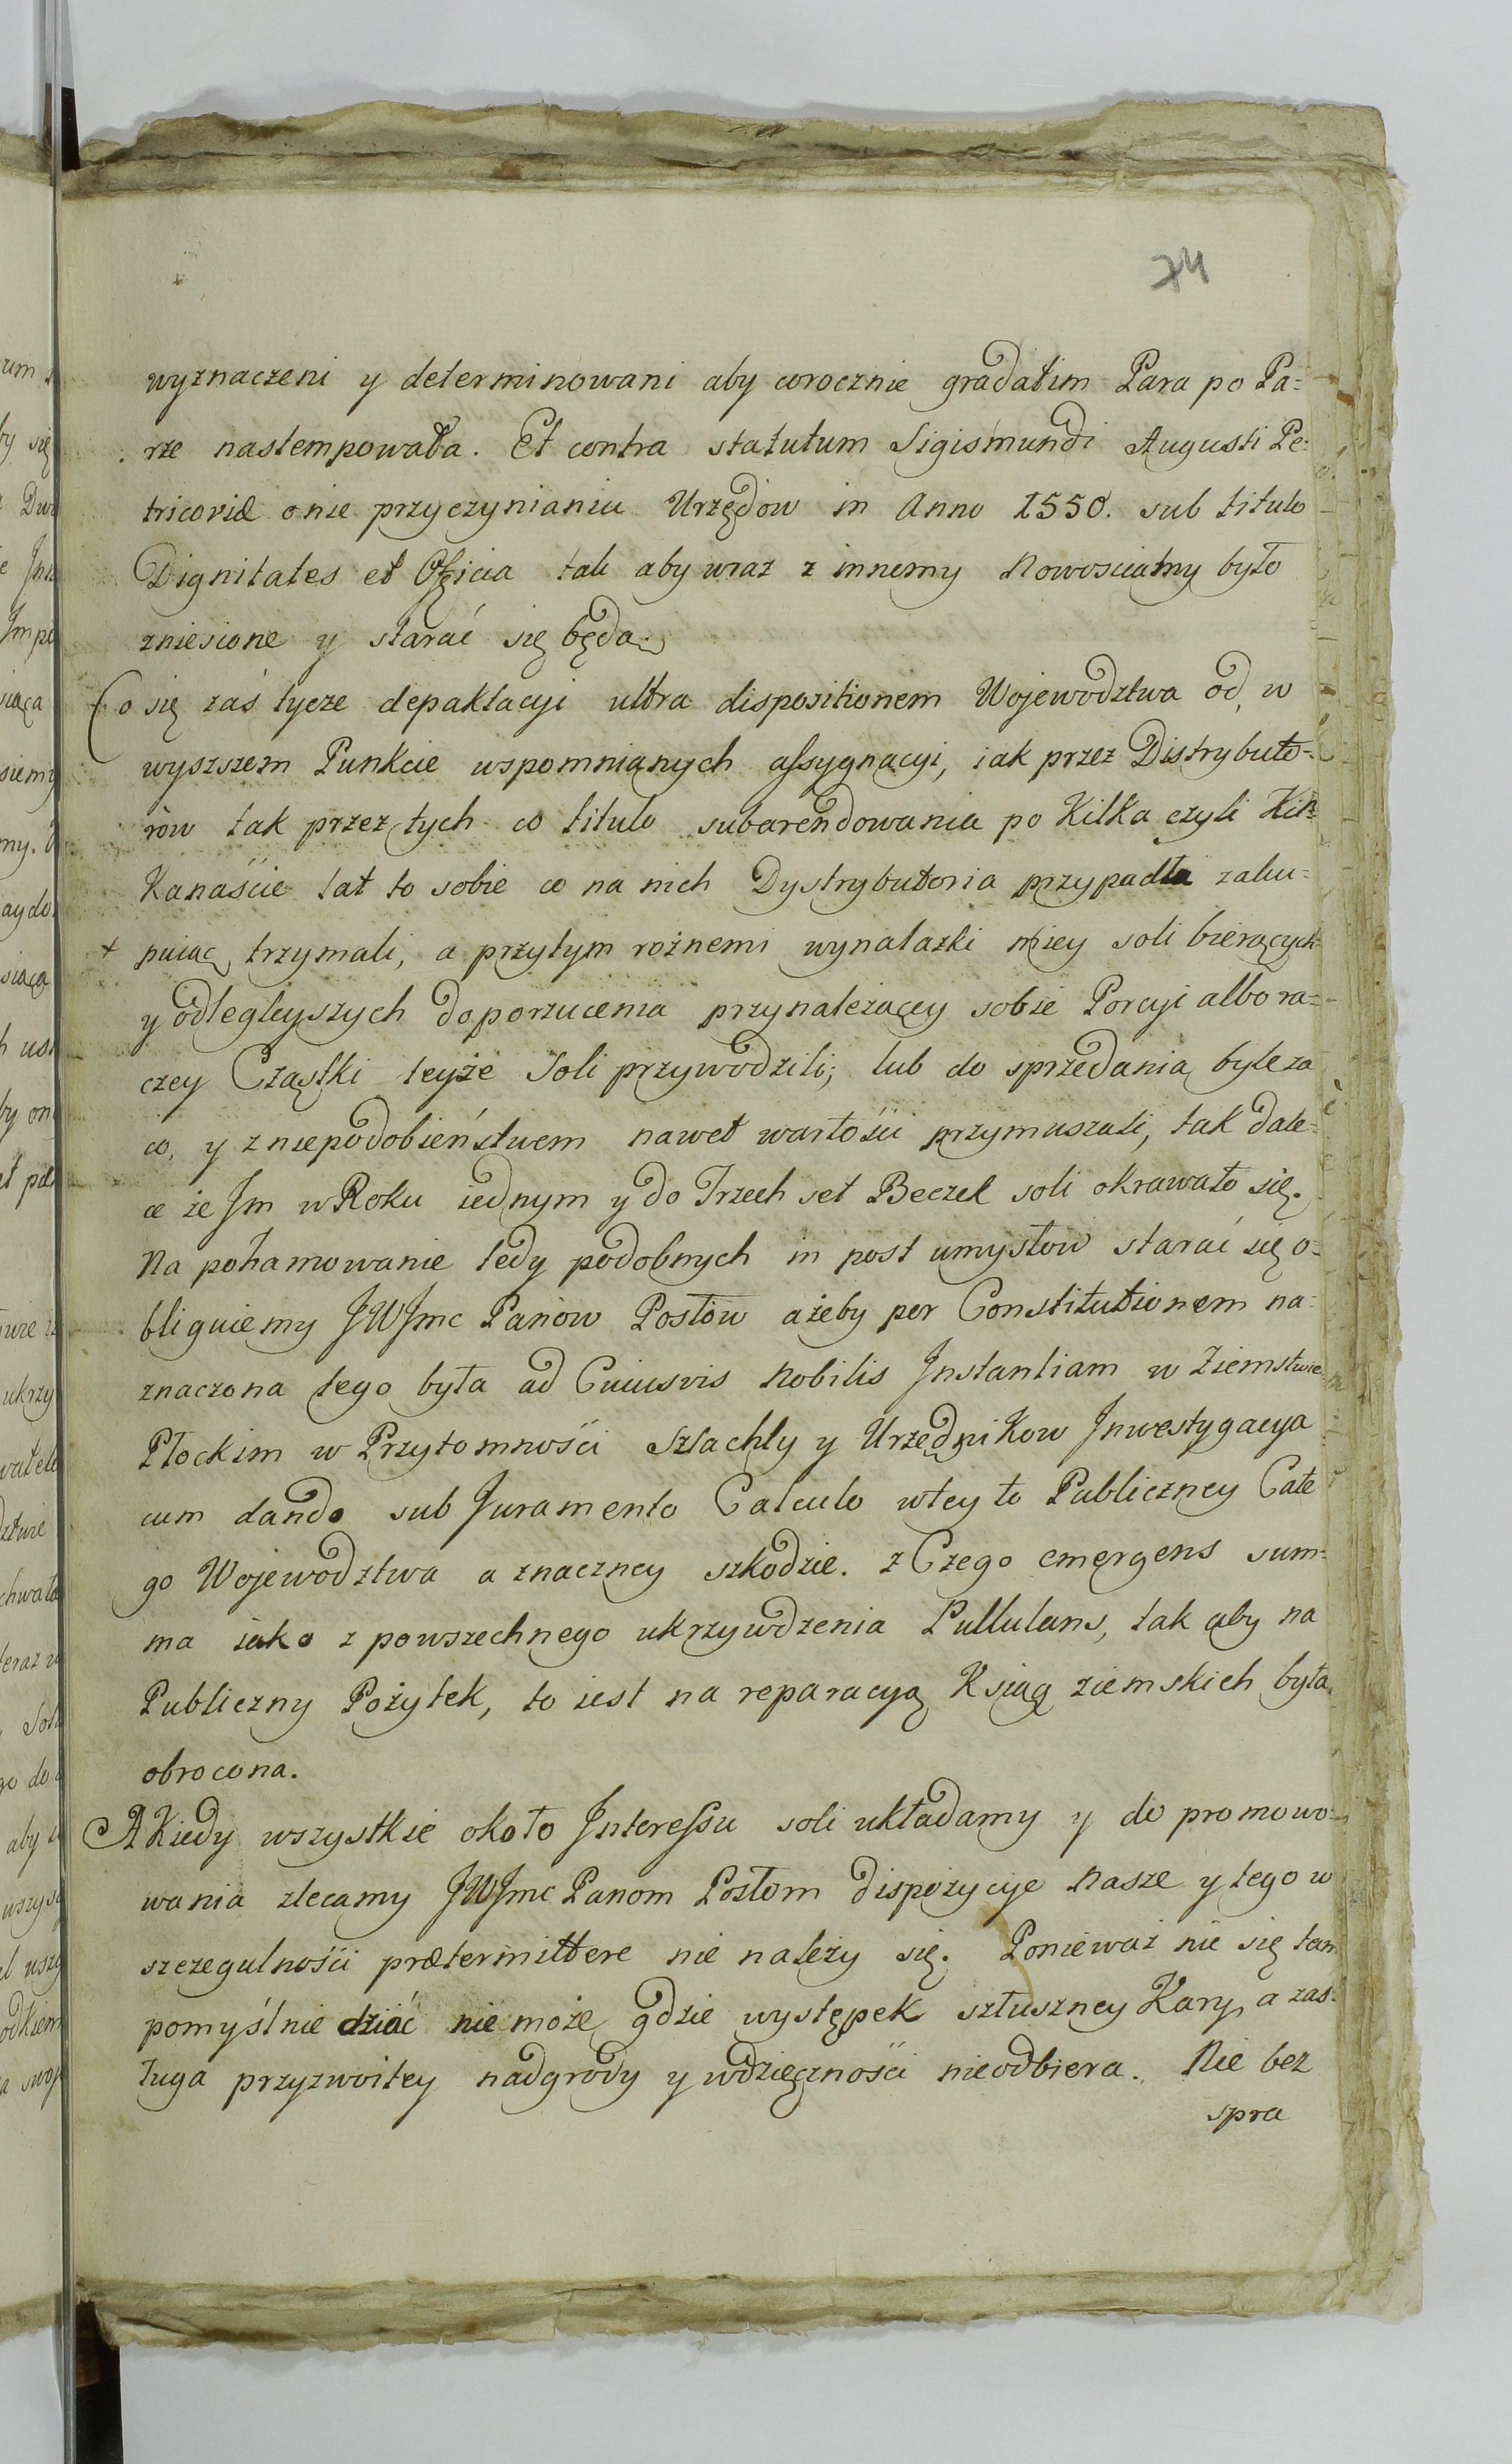 74
wyznaczeni y determinowani aby corocznie gradatim Para po Pa=
rze nastempowała. Et contra statutum Sigismundi Augusti Pe:
tricoviæ o nie przyczynianiu Urzędow in Anno 1550. sub titulo
Dignitates et Officia tak aby wraz z innemy Nowosciamy było
zniesione y starać się będą.
Co się zaś tycze depaktacyi ultra dispositionem Wojewodztwa od, w
wyszszem Punkcie wspomnianych assygnacyi, iak przez Distrybuto=
row tak przez tych co titulo subarendowania po Kilka czyli Kil=
Kanaście lat to sobie co na nich Dystrybutoria przypadła zaku=
+ puiąc trzymali, a przytym rożnemi wynalazki mniey soli bierących
y odlegleyszych do porzucenia przynależącey sobie Porcyi albo ra=
czey Cząstki teyże Soli przywodzili; lub do sprzedania byle za
co, y z niepodobieństwem nawet wartości przymuszali, tak dale=
ce że Im w Roku iednym y do Trzech set Beczek soli okrawało się.
Na pohamowanie tedy podobnych in post umysłow starać się o=
bliguiemy JWJmc Panow Posłow ażeby per Constitutionem na=
znaczona tego była ad Cuiusvis Nobilis Instantiam w Ziemstwie
Płockim w Przytomności Szlachty y UrzędniKow Inwestygacya
cum dando sub Juramento Calculo w tey to Publiczney Całe
go Wojewodztwa a znaczney szkodzie. z Czego emergens sum=
ma iako z powszechnego ukrzywdzenia Pullulans, tak aby na
Publiczny Pożytek, to iest na reparacyą Ksiąg ziemskich była
obrocona.
A Kiedy wszystkie około Interessu soli układamy y do promowo=
wania zlecamy JWJmc Panom Posłom dispozycye Nasze y tego w
szczegulności prætermittere nie należy się. Ponieważ nie się tam
pomyślnie dziać nie może gdzie występek słuszney Kary, a zas=
ługa przyzwoitey nadgrody y wdzięczności nieodbiera. Nie bez
spra